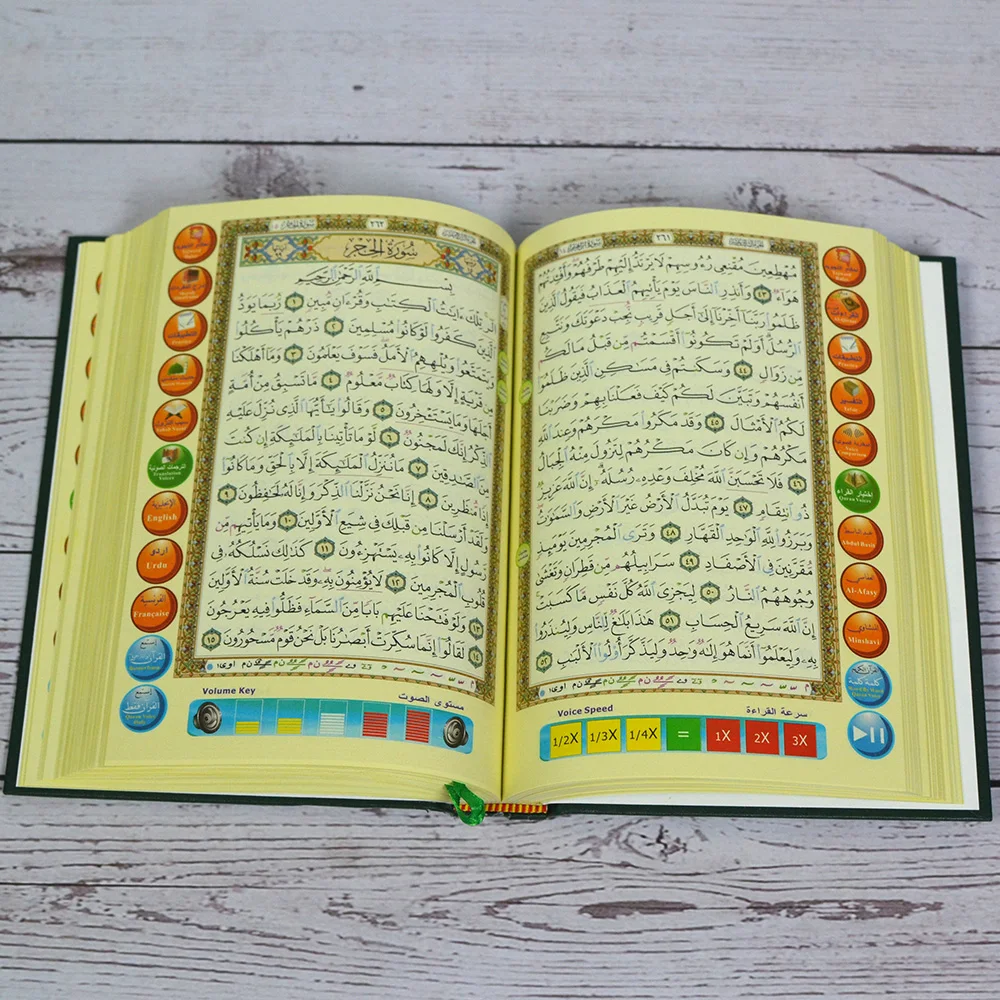 سورة إبراهيم
٢٦١
مُهْطِعِينَ مُقْنِعِى رُءُوسِهِمْ لَا يَرْتَدُّ إِلَيْهِمْ طَرْفُهُمْ وَأَفْـِٔدَتُهُمْ
هَوَآءٌ ٤٣ وَأَنذِرِ ٱلنَّاسَ يَوْمَ يَأْتِيهِمُ ٱلْعَذَابُ فَيَقُولُ ٱلَّذِينَ
ظَلَمُوا۟ رَبَّنَآ أَخِّرْنَآ إِلَىٰٓ أَجَلٍ قَرِيبٍ نُّجِبْ دَعْوَتَكَ وَنَتَّبِعِ
ٱلرُّسُلَ أَوَلَمْ تَكُونُوٓا۟ أَقْسَمْتُم مِّن قَبْلُ مَا لَكُم
مِّن زَوَالٍ ٤٤ وَسَكَنتُمْ فِى مَسَـٰكِنِ ٱلَّذِينَ ظَلَمُوٓا۟
أَنفُسَهُمْ وَتَبَيَّنَ لَكُمْ كَيْفَ فَعَلْنَا بِهِمْ وَضَرَبْنَا
لَكُمُ ٱلْأَمْثَالَ ٤٥ وَقَدْ مَكَرُوا۟ مَكْرَهُمْ وَعِندَ ٱللَّهِ
مَكْرُهُمْ وَإِن كَانَ مَكْرُهُمْ لِتَزُولَ مِنْهُ ٱلْجِبَالُ
٤٦ فَلَا تَحْسَبَنَّ ٱللَّهَ مُخْلِفَ وَعْدِهِۦ رُسُلَهُۥٓ إِنَّ ٱللَّهَ عَزِيزٌ
ذُو ٱنتِقَامٍ ٤٧ يَوْمَ تُبَدَّلُ ٱلْأَرْضُ غَيْرَ ٱلْأَرْضِ وَٱلسَّمَـٰوَٰتُ
وَبَرَزُوا۟ لِلَّهِ ٱلْوَٰحِدِ ٱلْقَهَّارِ ٤٨ وَتَرَى ٱلْمُجْرِمِينَ يَوْمَئِذٍ
مُّقَرَّنِينَ فِى ٱلْأَصْفَادِ ٤٩ سَرَابِيلُهُم مِّن قَطِرَانٍ وَتَغْشَىٰ
وُجُوهَهُمُ ٱلنَّارُ ٥٠ لِيَجْزِىَ ٱللَّهُ كُلَّ نَفْسٍ مَّا كَسَبَتْ
إِنَّ ٱللَّهَ سَرِيعُ ٱلْحِسَابِ ٥١ هَـٰذَا بَلَـٰغٌ لِّلنَّاسِ وَلِيُنذَرُوا۟
بِهِۦ وَلِيَعْلَمُوٓا۟ أَنَّمَا هُوَ إِلَـٰهٌ وَٰحِدٌ وَلِيَذَّكَّرَ أُو۟لُوا۟ ٱلْأَلْبَـٰبِ ٥٢
Voice Speed
سرعة القراءة
1/2X 1/3X 1/4X = 1X 2X 3X
التفسير
Tafsir
إختيار القراء
Quran Voices
عبد الباسط
Abdul Basit
عفاسي
Al-Afasy
منشاوي
Minshavi
كلمة كلمة
٢٦٢
سُورَةُ الْحِجْرِ
بِسْمِ ٱللَّهِ ٱلرَّحْمَـٰنِ ٱلرَّحِيمِ
الٓر تِلْكَ ءَايَـٰتُ ٱلْكِتَـٰبِ وَقُرْءَانٍ مُّبِينٍ ١ رُّبَمَا يَوَدُّ
ٱلَّذِينَ كَفَرُوا۟ لَوْ كَانُوا۟ مُسْلِمِينَ ٢ ذَرْهُمْ يَأْكُلُوا۟
وَيَتَمَتَّعُوا۟ وَيُلْهِهِمُ ٱلْأَمَلُ فَسَوْفَ يَعْلَمُونَ ٣ وَمَآ أَهْلَكْنَا
مِن قَرْيَةٍ إِلَّا وَلَهَا كِتَابٌ مَّعْلُومٌ ٤ مَّا تَسْبِقُ مِنْ أُمَّةٍ
أَجَلَهَا وَمَا يَسْتَـْٔخِرُونَ ٥ وَقَالُوا۟ يَـٰٓأَيُّهَا ٱلَّذِى نُزِّلَ عَلَيْهِ
ٱلذِّكْرُ إِنَّكَ لَمَجْنُونٌ ٦ لَّوْ مَا تَأْتِينَا بِٱلْمَلَـٰٓئِكَةِ إِن كُنتَ
مِنَ ٱلصَّـٰدِقِينَ ٧ مَا نُنَزِّلُ ٱلْمَلَـٰٓئِكَةَ إِلَّا بِٱلْحَقِّ وَمَا كَانُوٓا۟
إِذًا مُّنظَرِينَ ٨ إِنَّا نَحْنُ نَزَّلْنَا ٱلذِّكْرَ وَإِنَّا لَهُۥ لَحَـٰفِظُونَ ٩
وَلَقَدْ أَرْسَلْنَا مِن قَبْلِكَ فِى شِيَعِ ٱلْأَوَّلِينَ ١٠ وَمَا يَأْتِيهِم مِّن
رَّسُولٍ إِلَّا كَانُوا۟ بِهِۦ يَسْتَهْزِءُونَ ١١ كَذَٰلِكَ نَسْلُكُهُۥ فِى
قُلُوبِ ٱلْمُجْرِمِينَ ١٢ لَا يُؤْمِنُونَ بِهِۦ وَقَدْ خَلَتْ سُنَّةُ ٱلْأَوَّلِينَ
١٣ وَلَوْ فَتَحْنَا عَلَيْهِم بَابًا مِّنَ ٱلسَّمَآءِ فَظَلُّوا۟ فِيهِ يَعْرُجُونَ
١٤ لَقَالُوٓا۟ إِنَّمَا سُكِّرَتْ أَبْصَـٰرُنَا بَلْ نَحْنُ قَوْمٌ مَّسْحُورُونَ ١٥
Volume Key
مستوى الصوت
الترجمات الصوتية
Translation Voices
الإنجليزية
English
اردو
Urdu
الفرنسية
Française
إستمع
القرآن فقط
Quran Voice Only